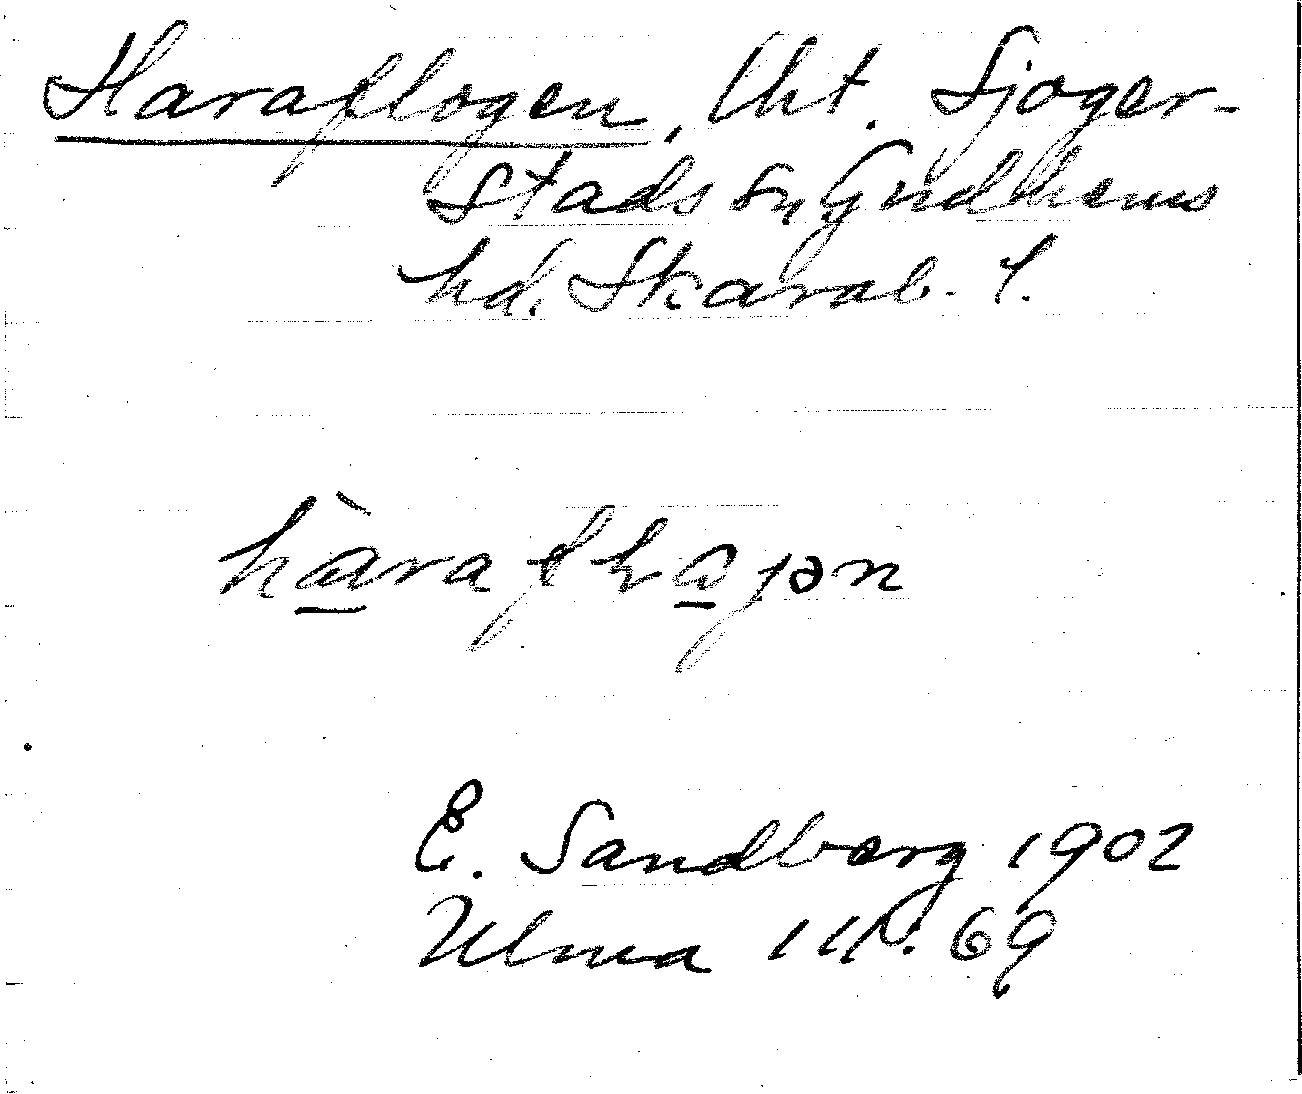 Haraflogen, Uht. Sjoger-
stads sn Gudhems
hd. Skarab. l.
E. Sandberg 1902
Ulma 111. 69